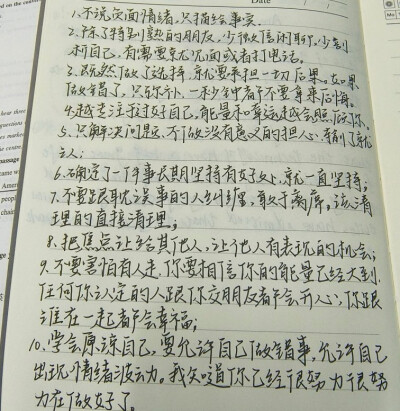 Date
1.不说负面情绪,只描绘事实.
2.除了特别熟的朋友,少微信闲聊,少刻
利自己,有需要就见面或者打电话。
3.既然做了选择,就要承担一切后果。如果
做错了,只弥补,一秒钟都不要拿来后悔。
4.越专注投好自己,能量和幸运越会照顾你。
5.只解决问题,不做没有意义的担心,来到了就
去人;
6.确定了一件事长期坚持有好处,就一直坚持;
7.不要跟耽误事的人纠缠,敢于离席。该清
理的直接清理;
8.把焦点让给其他人,让他人有表现的机会;
9.不要害怕有人走,你要相信你的能量已经大到,
任何你认定的人跟你交朋友都会开心,你跟
谁在一起都会幸福;
10.学会原谅自己,要允许自己做错事,允许自己
出现情绪波动。我知道你已经很努力很努
力在做好了。